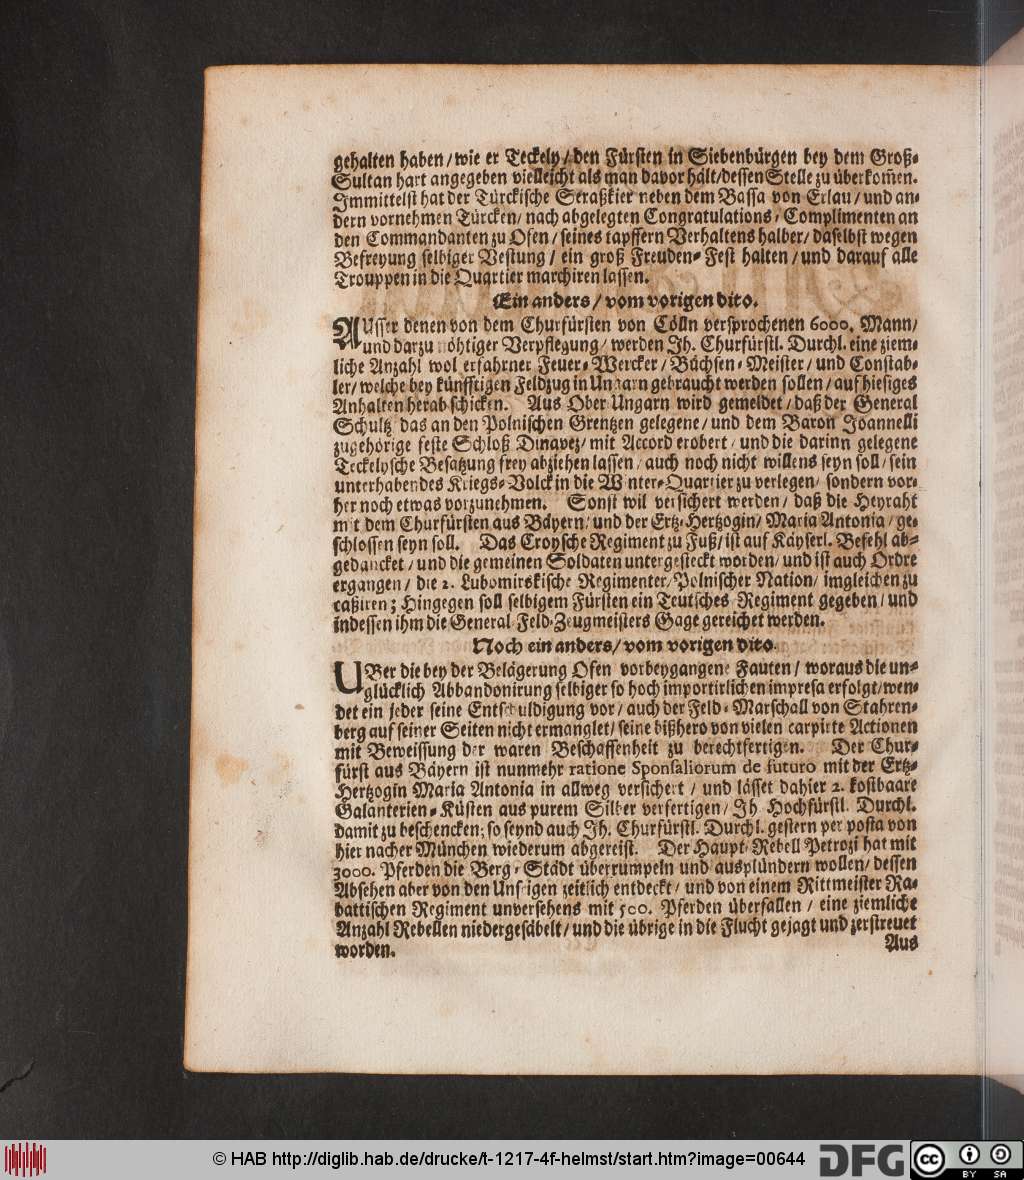 gehalten haben / wie er Teckely / den Fürsten in Siebenbürgen bey dem Groß-
Sultan hart angegeben vielleicht als man davor hält / dessen Stelle zu überkom̃en.
Immittelst hat der Türckische Seraßkier neben dem Bassa von Erlau / und an-
dern vornehmen Türcken / nach abgelegten Congratulations-Complimenten an
den Commandanten zu Ofen / seines tapffern Verhaltens halber / daselbst wegen
Befreyung selbiger Vestung / ein groß Freuden-Fest halten / und darauf alle
Trouppen in die Quartier marchiren lassen.
Ein anders / vom vorigen dito.
AUsser denen von dem Churfürsten von Cölln versprochenen 6000. Mann /
und darzu nöhtiger Verpflegung / werden Ih. Churfürstl. Durchl. eine ziem-
liche Anzahl wol erfahrner Feuer-Wercker / Büchsen-Meister / und Constab-
ler / welche bey künfftigen Feldzug in Ungarn gebraucht werden sollen / auf hiesiges
Anhalten herab schicken. Aus Ober Ungarn wird gemeldet / daß der General
Schultz das an den Polnischen Grentzen gelegene / und dem Baron Joannelli
zugehörige feste Schloß Dunavez / mit Accord erobert / und die darinn gelegene
Teckelysche Besatzung frey abziehen lassen / auch noch nicht willens seyn soll / sein
unterhabendes Kriegs-Volck in die Winter-Quartier zu verlegen / sondern vor-
her noch etwas vorzunehmen. Sonst wil versichert werden / daß die Heyraht
mit dem Churfürsten aus Bäyern / und der Ertz-Hertzogin / Maria Antonia / ge-
schlossen seyn soll. Das Croysche Regiment zu Fuß / ist auf Käyserl. Befehl ab-
gedancket / und die gemeinen Soldaten untergesteckt worden / und ist auch Ordre
ergangen / die 2. Lubomirskische Regimenter / Polnischer Nation / imgleichen zu
caßiren; Hingegen soll selbigem Fürsten ein Teutsches Regiment gegeben / und
indessen ihm die General-Feld-Zeugmeisters Gage gereichet werden.
Noch ein anders / vom vorigen dito.
UBer die bey der Belägerung Ofen vorbeygangene Fauten / woraus die un-
glücklich Abbandonirung selbiger so hoch importirlichen impresa erfolgt / wen-
det ein jeder seine Entschuldigung vor / auch der Feld-Marschall von Stahren-
berg auf seiner Seiten nicht ermanglet / seine bißhero von vielen carpirte Actionen
mit Beweissung der waren Beschaffenheit zu berechtfertigen. Der Chur-
fürst aus Bäyern ist nunmehr ratione Sponsaliorum de futuro mit der Ertz-
Hertzogin Maria Antonia in allweg versichert / und lässet dahier 2. kostbaare
Galanterien-Küsten aus purem Silber verfertigen / Ih Hochfürstl. Durchl.
damit zu beschencken; so seynd auch Ih. Churfürstl. Durchl. gestern per posta von
hier nacher München wiederum abgereist. Der Haupt-Rebell Petrozi hat mit
3000. Pferden die Berg-Städt überrumpeln und ausplündern wollen / dessen
Absehen aber von den Unsrigen zeitlich entdeckt / und von einem Rittmeister Ra-
battischen Regiment unversehens mit 500. Pferden überfallen / eine ziemliche
Anzahl Rebellen niedergesäbelt / und die übrige in die Flucht gejagt und zerstreuet
worden.
Aus
© HAB http://diglib.hab.de/drucke/t-1217-4f-helmst/start.htm?image=00644
DFG
cc BY SA